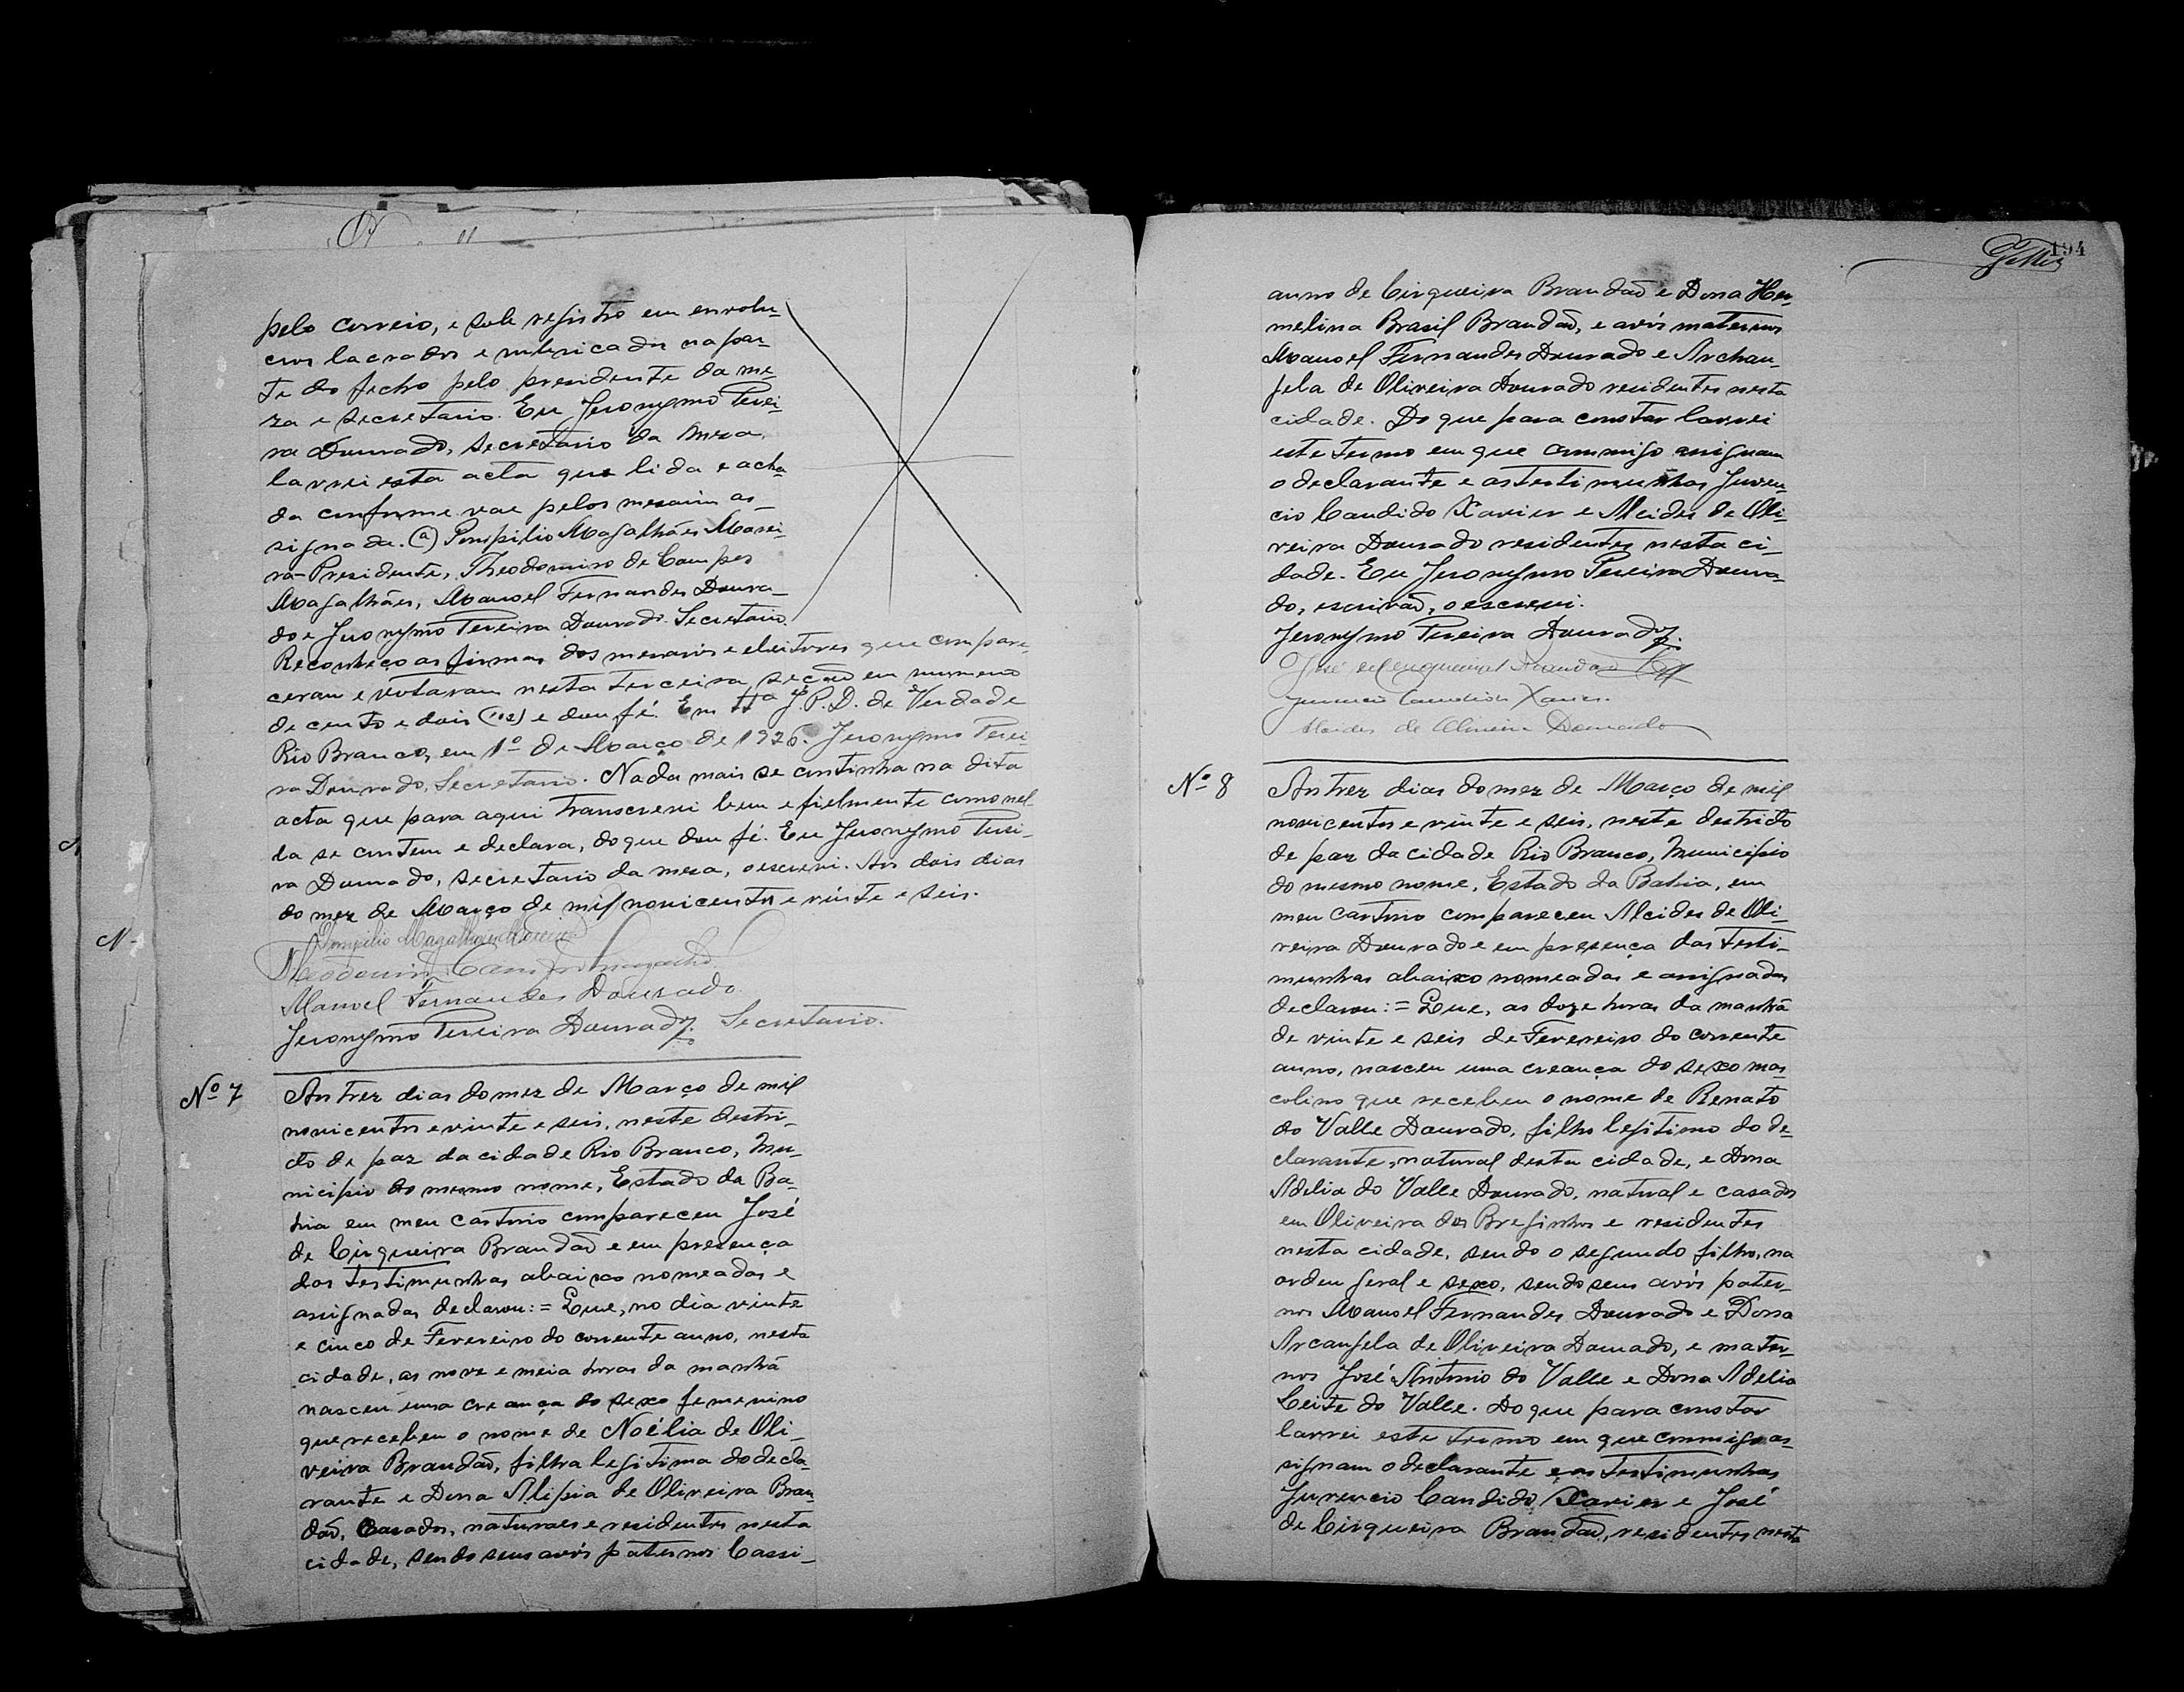 pelo correio, e sob registro em envolu-
cros lacrados e rubricados na par-
te do fecho pelo presidente da me-
za e secretario. Eu Jeronymo Perei-
ra Dourado, secretario da mesa,
lavrei esta acta que lida e acha
da conforme vae pelos mesarios as-
signada. (a) Pompilio Magalhães Morei-
ra - Presidente, Theodomiro de Campos
Magalhães, Manoel Fernandes Doura-
do e Jeronymo Pereira Dourado. Secretario.
Reconheço as firmas dos mesarios e eleitores que compare-
ceram e votaram nesta terceira secção em numero
de cento e dois (102) e dou fé. Em Ttº J.P.D. de Verdade
Rio Branco, em 1º de Março de 1926. Jeronymo Perei
ra Dourado, Secretario. Nada mais se continha na dita
acta que para aqui transcrevi bem e fielmente como nel
la se contem e declara, do que dou fé. Eu Jeronymo Perei-
ra Dourado, secretario da mesa, o escrevi. Aos dois dias
do mez de Março de mil novicentos e vinte e seis.
Pompilio Magalhães Moreira
Theodomiro Campos Magalhães
Manoel Fernandes Dourado
Jeronymo Pereira Dourado. Secretario.
Nº 7
Aos trez dias do mez de Março de mil
novicentos e vinte e seis, neste destri-
cto de paz da cidade Rio Branco, Mu-
nicipio do mesmo nome, Estado da Ba-
hia em meu cartorio compareceu José
de Cirqueira Brandaõ e em presença
das testimunhas abaixo nomeadas e
assignadas declarou: = Que, no dia vinte
e cinco de Fevereiro do corrente anno, nesta
cidade, as nove e meia horas da manhã
nasceu uma creança do sexo femenino
que recebeu o nome de Noélia de Oli-
veira Brandaõ, filha legitima do decla-
rante e Dona Alipia de Oliveira Bran-
daõ, Casados, naturaes e residentes nesta
cidade, sendo seus avós paternos Cassi-
194
anno de Cirqueira Brandaõ e Dona Her-
melina Brasil Brandaõ, e avós maternos
Manoel Fernandes Dourado e Archan-
gela de Oliveira Dourado residentes nesta
cidade. Do que para constar lavrei
este termo em que commigo assignam
o declarante e as testimunhas Juven-
cio Candido Xavier e Alcides de Oli-
veira Dourado residentes nesta ci-
dade. Eu Jeronymo Pereira Doura-
do, escrivaõ, o escrevi.
Jeronymo Pereira Dourado.
José de Cirqueira Brandaõ
Juvencio Candido Xavier.
Alcides de Oliveira Dourado
Nº 8
Aos trez dias do mez de Março de mil
novicentos e vinte e seis, neste destricto
de paz da cidade Rio Branco, Municipio
do mesmo nome, Estado da Bahia, em
meu cartorio compareceu Alcides de Oli-
veira Dourado e em presença das testi-
munhas abaixo nomeadas e assignadas
declarou: = Que, as doze horas da manhã
de vinte e seis de Fevereiro do corrente
anno, nasceu uma creança do sexo mas-
colino que recebeu o nome de Renato
do Valle Dourado, filho legitimo do de-
clarante, natural desta cidade, e Dona
Adelia do Valle Dourado, natural e casados
em Oliveira dos Bresinhos e residentes
nesta cidade, sendo o segundo filho, na
orden geral e sexo, sendo seus avós pater-
nos Manoel Fernandes Dourado e Dona
Arcangela de Oliveira Dourado, e mater-
nos José Antonio do Valle e Dona Adelia
Leite do Valle. Do que para constar
lavrei este termo em que commigo as-
signam o declarante e as testimunhas
Juvencio Candido Xavier e José
de Cirqueira Brandaõ, residentes nesta